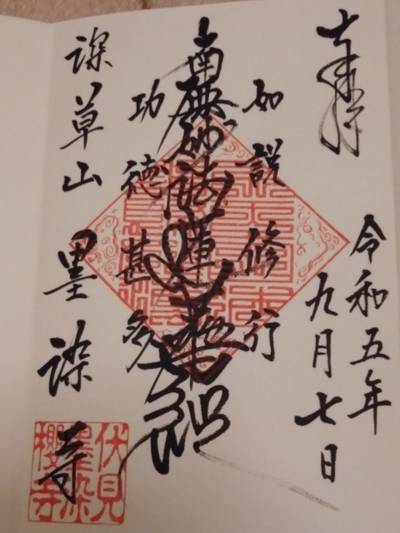 奉拝
令和五年
九月七日
如説修行
南無妙法蓮華経
功徳甚多
深草山
墨染寺
伏見
墨染
櫻寺